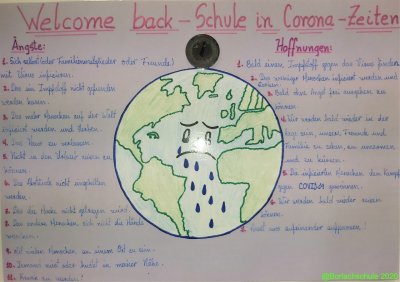 Welcome back - Schule in Corona-Zeiten
Ängste:
1. Sich selbst (oder Familienmitglieder oder Freunde)
mit Virus infizieren.
2. Das ein Impfstoff nicht gefunden
werden kann.
3. Das viele Menschen auf der Welt
infiziert werden und sterben.
4. Das Haus zu verlassen.
5. Nicht in den Urlaub reisen zu
können.
6. Das Abstände nicht eingehalten
werden.
7. Das die Maske nicht getragen wird.
8. Das andere Menschen sich nicht die Hände
9. Mit vielen Menschen an einem Ort zu sein.
10. Jemand niest oder hustet in meiner Nähe.
11. zu werden!
Hoffnungen:
1. Bald einen Impfstoff gegen das Virus finden
2. Das weniger Menschen infiziert werden und
sterben.
3. Bald ohne Angst frei ausgehen zu
können.
4. Wir werden bald wieder in der
sein, unsere Freunde und
Familie zu sehen, zu umarmen
und zu küssen.
5. Die infizierten Menschen den Kampf
gegen COVID19 gewinnen.
6. Wir werden bald wieder reisen
können.
7. Das wir aufeinander aufpassen!
@Borlachschule 2020